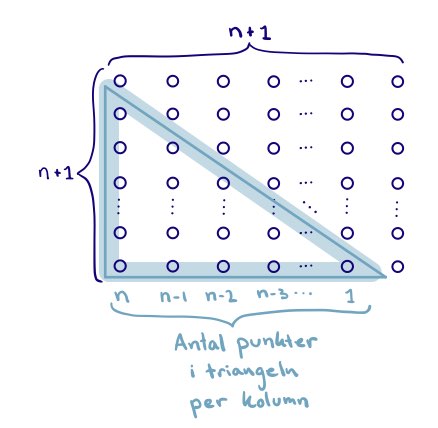 n+1
n+1
n n-1 n-2 n-3 ... 1
Antal punkter
i triangeln
per kolumn